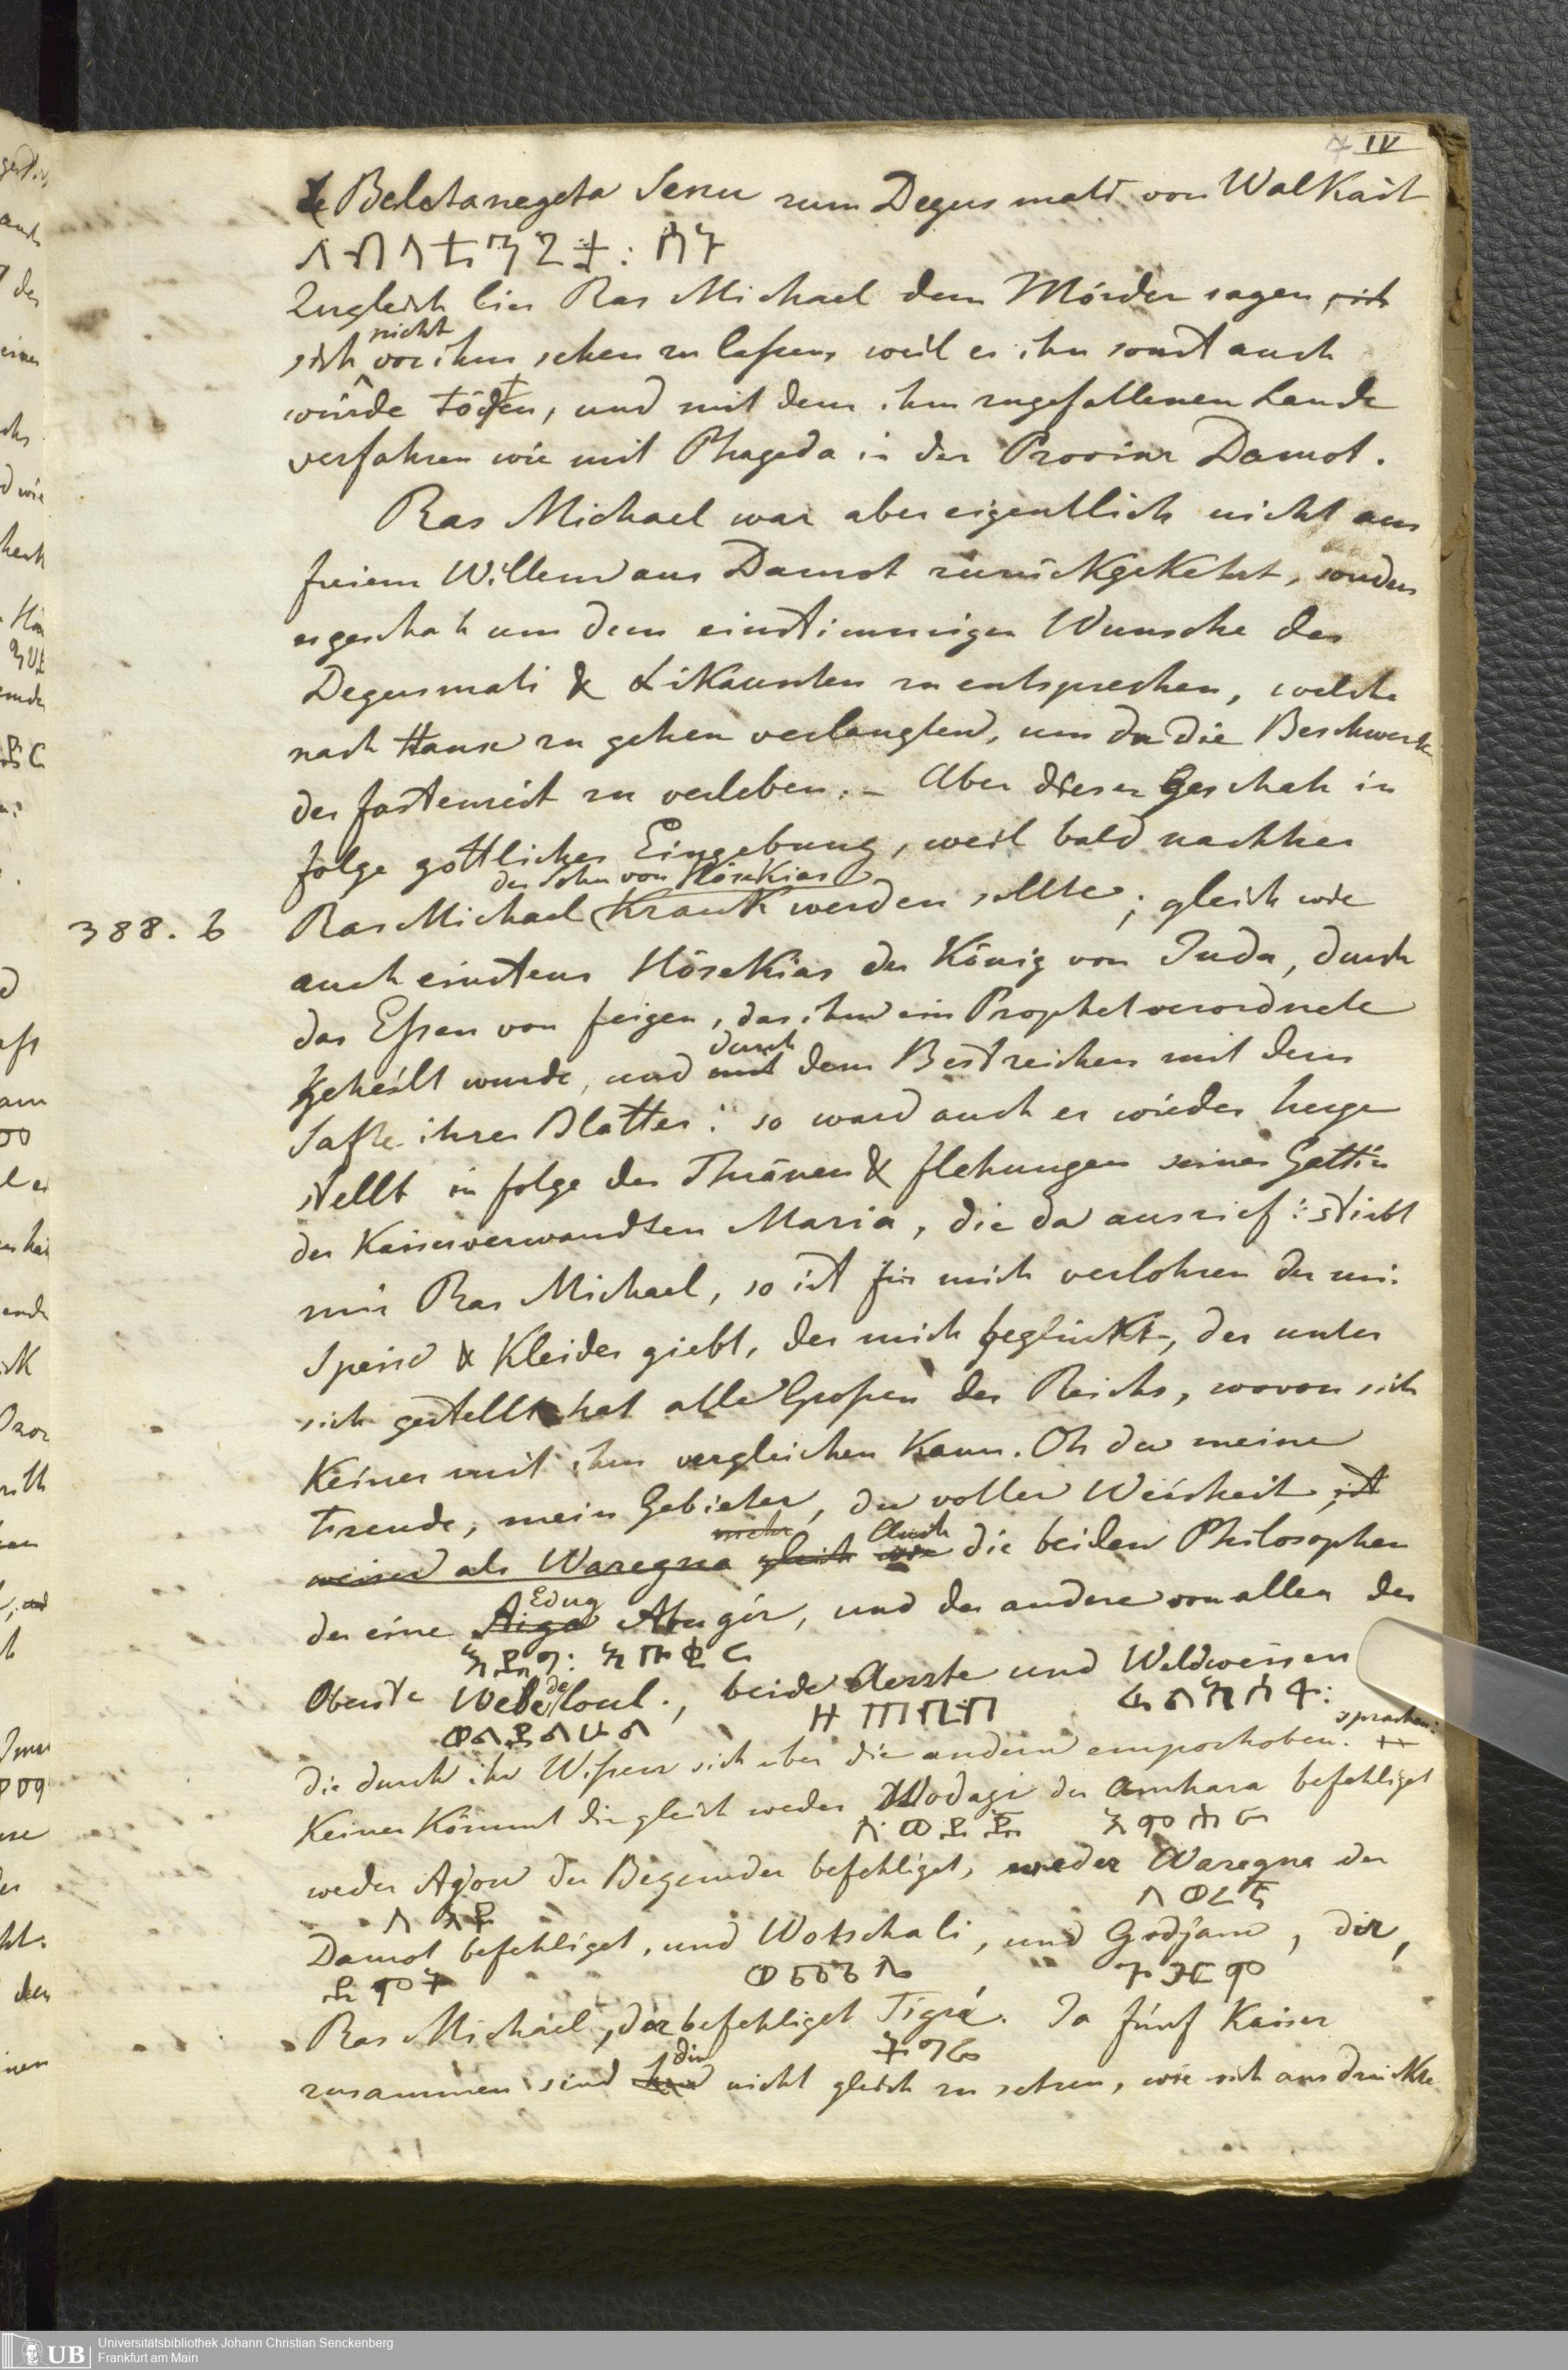 IV
Beletanegeta Senu zum Degusmati von WalKait
ለብለተንጌታ: ሰኑ
Zugleich lies Ras Michael dem Mörder sagen, sich
sich nicht vor ihm sehen zu lassen, weil er ihn sonst auch
würde tödten, und mit dem ihm zugefallenen Lande
verfahren wie mit Phageda in der Provinz Damot.
Ras Michael war aber eigentlich nicht aus
freiem Willen aus Damot zurückgeKehrt, sondern
es geschah um dem einstimmigen Wunsche der
Degusmati & LiKaunten zu entsprechen, welche
nach Hause zu gehen verlangten, um da die Beschwerde
der Fastenzeit zu verleben. – Aber dieses geschah in
folge göttlicher Eingebung, weil bald nachher
der Sohn von HöseKias
388. b Ras Michael Krank werden sollte; gleich wie
auch einstens HöseKias der König von Juda, durch
das Essen von feigen, das ihm ein Prophet verordnete
geheilt wurde, und mit durch dem Bestreichen mit dem
Safte ihrer Blätter: so ward auch er wieder herge
stellt in folge der Thränen & flehungen seiner Gattin
der Kaiserverwandten Maria, die da ausrief: stirbt
mir Ras Michael, so ist für mich verlohren der mir
Speise & Kleider giebt, der mich beglückt, der unter
sich gestellt hat alle Grossen des Reichs, wovon sich
Keiner mit ihm vergleichen Kann. Oh du meine
Freude, mein Gebieter, du voller Weisheit, ist
weiser als Waregna mehr gleich wie Auch die beiden Philosophen
der eine Aiga Edug Abugér, und der andere von allen der
እዱግ: እቡቄር
Oberste Weledeloul., beide Aerzte und Weldweisen
ወልደልዑል ዘ ጠቢብ ፈላስፋ:
die durch ihr Wissen sich über die andern emporhoben. sprachen:
Keiner Kömmt dir gleich weder Wodagi der Amhara befehliget
ለወዳጄ አምሐራ
weder Ayou der Begemder befehliget, weder Waregna der
ለ አዩ ለወረኛ
Damot befehliget, und Wotschali, und Godjam, dir,
ዳሞት ጎጃም
Ras Michael, der befehliget Tigré. Ja fünf Kaiser
ትግሬ
zusammen sind dir nicht gleich zu setzen, wie sich ausdrückte
Universitätsbibliothek Johann Christian Senckenberg
Frankfurt am Main
UB